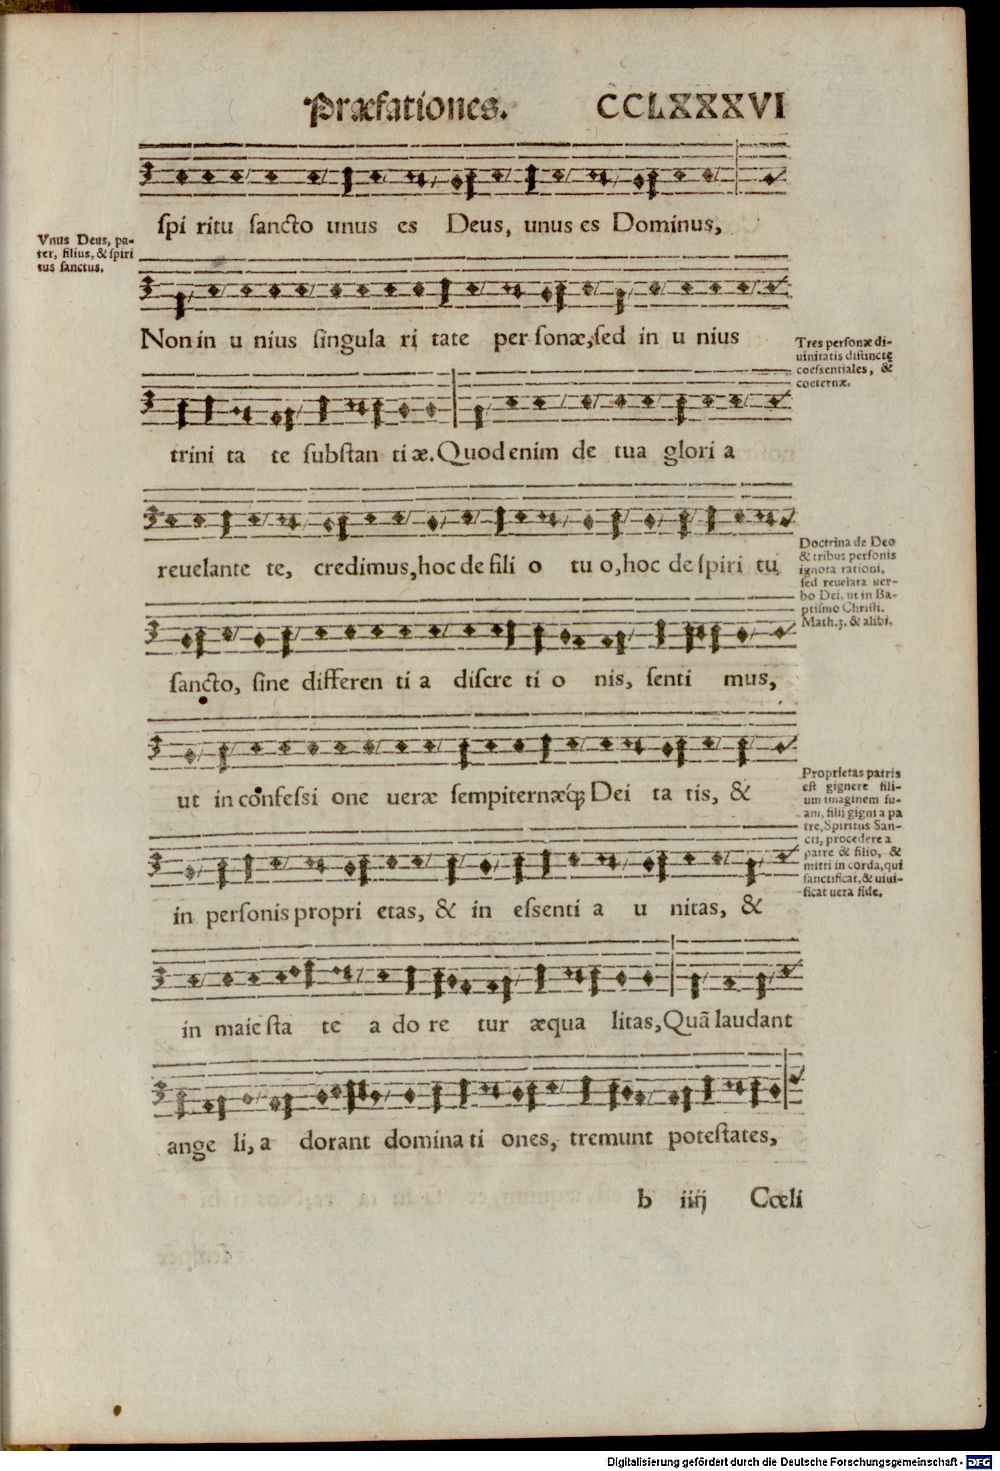 Præfationes. CCLXXXVI
spi ritu sancto unus es Deus, unus es Dominus,
Vnus Deus, pa-
ter, filius, & spiri
tus sanctus.
Non in u nius singula ri tate per sonæ, sed in u nius
Tres personæ di-
uinitatis distinctę
coessentiales, &
coeternæ.
trini ta te substan ti æ. Quod enim de tua glori a
reuelante te, credimus, hoc de fili o tu o, hoc de spiri tu
Doctrina de Deo
& tribus personis
ignota rationi,
sed reuelata uer-
bo Dei, ut in Ba-
ptismo Christi.
Math.3. & alibi.
sancto, sine differen ti a discre ti o nis, senti mus,
ut in confessi one ueræ sempiternæq́; Dei ta tis, &
Proprietas patris
est gignere fili-
um imaginem su-
am, filij gigni a pa
tre, Spiritus San-
cti, procedere a
patre & filio, &
mitti in corda, qui
sanctificat, & uiui-
ficat uera fide,
in personis propri etas, & in essenti a u nitas, &
in maie sta te a do re tur æqua litas, Quã laudant
ange li, a dorant domina ti ones, tremunt potestates,
b iiij Cœli
Digitalisierung gefördert durch die Deutsche Forschungsgemeinschaft - DFG